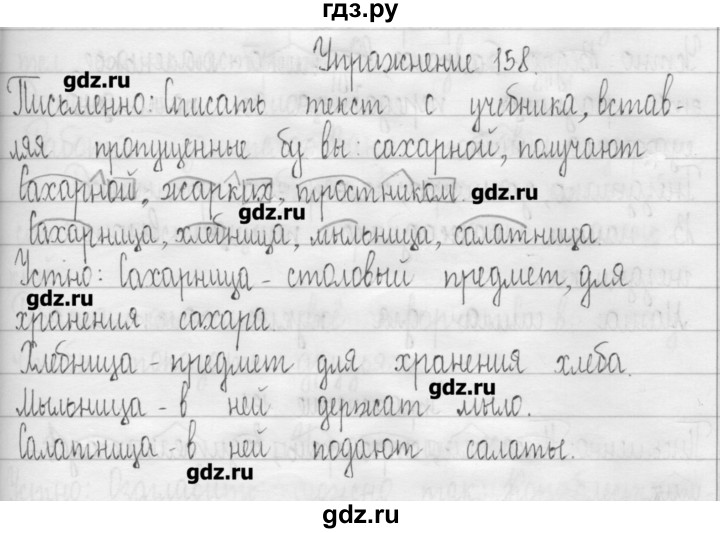 гдз.ру
Упражнение 158.
gdz.ru
Письменно: Списать текст с учебника, встав-
ляя пропущенные буквы: сахарной, получают
Сахарной, жарких, тростником. gdz.ru
gdz.ru
Сахарница, хлебница, мыльница, салатница.
Устно: Сахарница - столовый предмет, для
gdz.ru
хранения сахара
Хлебница - предмет для хранения хлеба.
gdz.ru
Мыльница - в ней держат мыло.
Салатница в ней подают салаты.
gdz.ru
gdz.ru